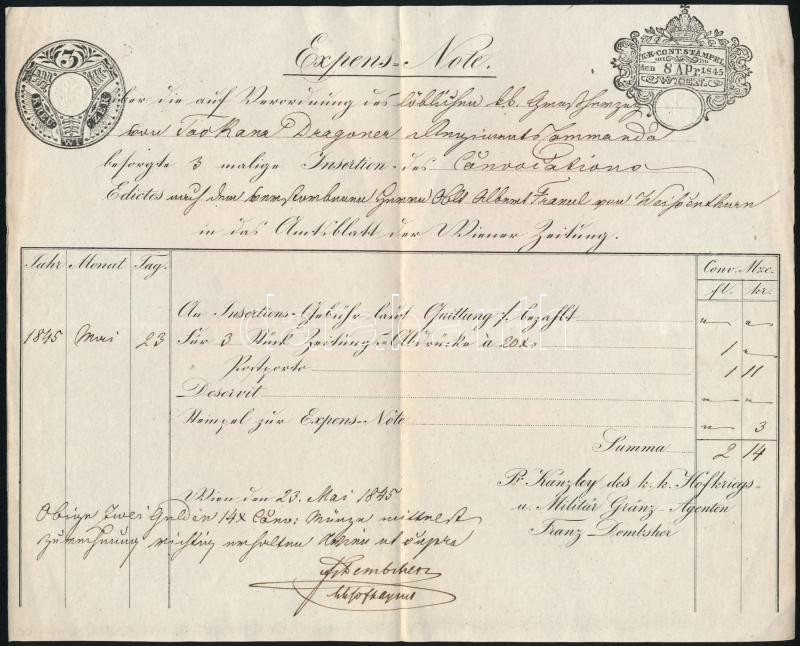 3
KREUZER
WIEN
K.K. CONT. STÄMPEL
den 8 Apr. 1845
WIEN
Expens-Note.
über die auf Verordnung des löblichen k.k. Großherzog
von Toskana Dragoner Regiments Commando
besorgte 3 malige Insertion des Convocations
Edictes nach dem verstorbenen Herrn Oblt Albert Franul von Weißenthurn
in das Amtsblatt der Wiener Zeitung.
Jahr Monat Tag. Conv. Mze.
fl. kr.
An Insertions-Gebühr laut Quittung /. bezahlt " "
1845 Mai 23 Für 3 Stück Zeitungs-Abdrücke à 20x 1 "
" Postporto 1 11
Deservit " "
Stempel zur Expens-Note " 3
Summa 2 14
Wien den 23. Mai 1845
Pr Kanzley des k. k. Hofkriegs-
u. Militär Gränz-Agenten
Franz Dembsher
Obige Zwei Gulden 14x Conv: Münze mittelst
zurechnung richtig erhalten ut supra
Dembscher